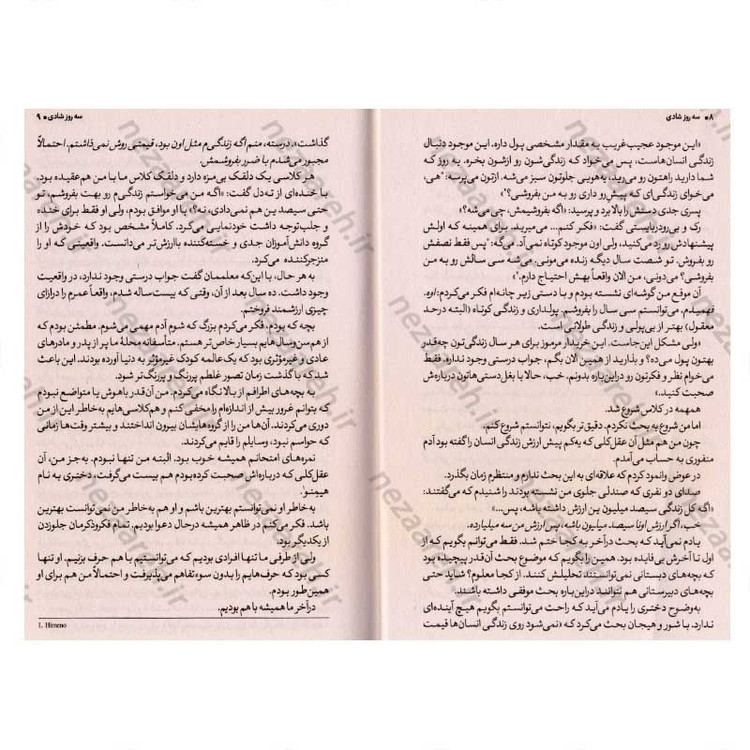 ۸ • سه روز شادی
«این موجود عجیب‌غریب یه مقدار مشخصی پول داره. این موجود دنبال
زندگی انسان‌هاست، پس می‌خواد که زندگی‌شون رو ازشون بخره. یه روز که
شما دارید راهتون رو می‌رید، یه‌هویی جلوتون سبز می‌شه. ازتون می‌پرسه: «هی،
می‌خوای زندگی‌ای که پیش‌رو داری رو به من بفروشی؟»»
پسری جدی دستش را بالا برد و پرسید: «اگه بفروشیمش، چی می‌شه؟»
رک و بی‌رودربایستی گفت: «فکر کنم... می‌میرید. برای همینه که اولش
پیشنهادش رو رد می‌کنید، ولی اون موجود کوتاه نمی‌آد. می‌گه: «پس فقط نصفش
رو بفروش. تو شصت سال دیگه زنده می‌مونی، می‌شه سی سالش رو به من
بفروشی؟ می‌دونی، من الان واقعاً بهش احتیاج دارم.»»
آن موقع من گوشه‌ای نشسته بودم و با دستی زیر چانه‌ام فکر می‌کردم: اوه.
فهمیدم، می‌توانستم سی سال را بفروشم. پولداری و زندگی کوتاه (البته درحد
معقول) بهتر از بی‌پولی و زندگی طولانی است.
«ولی مشکل این‌جاست. این خریدار مرموز برای هر سال زندگی‌تون چه‌قدر
بهتون پول می‌ده؟ و بذارید از همین الان بگم، جواب درستی وجود نداره. فقط
می‌خوام نظر و فکرتون رو دراین‌باره بدونم. خب، حالا با بغل‌دستی‌هاتون درباره‌ش
صحبت کنید.»
همهمه در کلاس شروع شد.
اما من شروع به بحث نکردم. دقیق‌تر بگویم، نتوانستم شروع کنم.
چون من هم مثل آن عقل‌کلی که یه‌کم پیش ارزش زندگی انسان را گفته بود آدم
منفوری به حساب می‌آمدم.
در عوض وانمود کردم که علاقه‌ای به این بحث ندارم و منتظرم زمان بگذرد.
صدای دو نفری که صندلی جلوی من نشسته بودند را شنیدم که می‌گفتند:
«اگه کل زندگی سیصد میلیون ین ارزش داشته باشه، پس...»
خب، اگر ارزش اونا سیصد میلیون باشه، پس ارزش من سه میلیارده.
یادم نمی‌آید که بحث درآخر به کجا ختم شد. فقط می‌توانم بگویم که از
اول تا آخرش بی‌فایده بود. همین را بگویم که موضوع بحث آن‌قدر پیچیده بود
که بچه‌های دبستانی نمی‌توانستند تحلیلش کنند. از کجا معلوم؟ شاید حتی
بچه‌های دبیرستانی هم نتوانند دراین‌باره بحث موفقی داشته باشند.
به‌وضوح دختری را یادم می‌آید که راحت می‌توانستم بگویم هیچ آینده‌ای
ندارد. با شور و هیجان بحث می‌کرد که «نمی‌شود روی زندگی انسان‌ها قیمت
سه روز شادی • ۹
گذاشت». درسته، منم اگه زندگی‌م مثل اون بود، قیمتی روش نمی‌ذاشتم. احتمالاً
مجبور می‌شدم با ضرر بفروشمش.
هر کلاسی یک دلقک بی‌مزه دارد و دلقک کلاس ما با من هم‌عقیده بود.
با خنده‌ای از ته‌دل گفت: «اگه من می‌خواستم زندگی‌م رو بهت بفروشم، تو
حتی سیصد ین هم نمی‌دادی، نه؟» با او موافق بودم، ولی او فقط برای خنده
و جلب‌توجه داشت خودنمایی می‌کرد. کاملاً مشخص بود که خودش را از
گروه دانش‌آموزان جدی و خسته‌کننده باارزش‌تر می‌دانست. واقعیتی که او را
منزجرکننده می‌کرد.
به هر حال، با این‌که معلممان گفت جواب درستی وجود ندارد، در واقعیت
وجود داشت. ده سال بعد از آن، وقتی که بیست‌ساله شدم، واقعاً عمرم را درازای
چیزی ارزشمند فروختم.
بچه که بودم، فکر می‌کردم بزرگ که شوم آدم مهمی می‌شوم. مطمئن بودم که
از هم‌سن‌وسال‌هایم بسیار خاص‌تر هستم. متأسفانه محلهٔ ما پر از پدر و مادرهای
عادی و غیرمؤثری بود که یک‌عالمه کودک غیرمؤثر به دنیا آورده بودند. این باعث
شد که با گذشت زمان تصور غلطم پررنگ و پررنگ‌تر شود.
به بچه‌های اطرافم از بالا نگاه می‌کردم. من آن‌قدر باهوش یا متواضع نبودم
که بتوانم غرور بیش از اندازه‌ام را مخفی کنم و هم‌کلاسی‌هایم به‌خاطر این از من
دوری می‌کردند. آن‌ها من را از گروه‌هایشان بیرون انداختند و بیشتر وقت‌ها زمانی
که حواسم نبود، وسایلم را قایم می‌کردند.
نمره‌های امتحانم همیشه خوب بود. البته من تنها نبودم. به‌جز من، آن
عقل‌کلی که درباره‌اش صحبت کرده‌بودم هم بیست می‌گرفت، دختری به نام
هیمنو¹.
به‌خاطر او نمی‌توانستم بهترین باشم و او هم به‌خاطر من نمی‌توانست بهترین
باشد. فکر می‌کنم در ظاهر همیشه درحال دعوا بودیم. تمام فکروذکرمان جلوزدن
از یکدیگر بود.
ولی از طرفی ما تنها افرادی بودیم که می‌توانستیم با هم حرف بزنیم. او تنها
کسی بود که حرف‌هایم را بدون سوءتفاهم می‌پذیرفت و احتمالاً من هم برای او
همین‌طور بودم.
درآخر ما همیشه با هم بودیم.
1. Himeno
nezaareh.ir